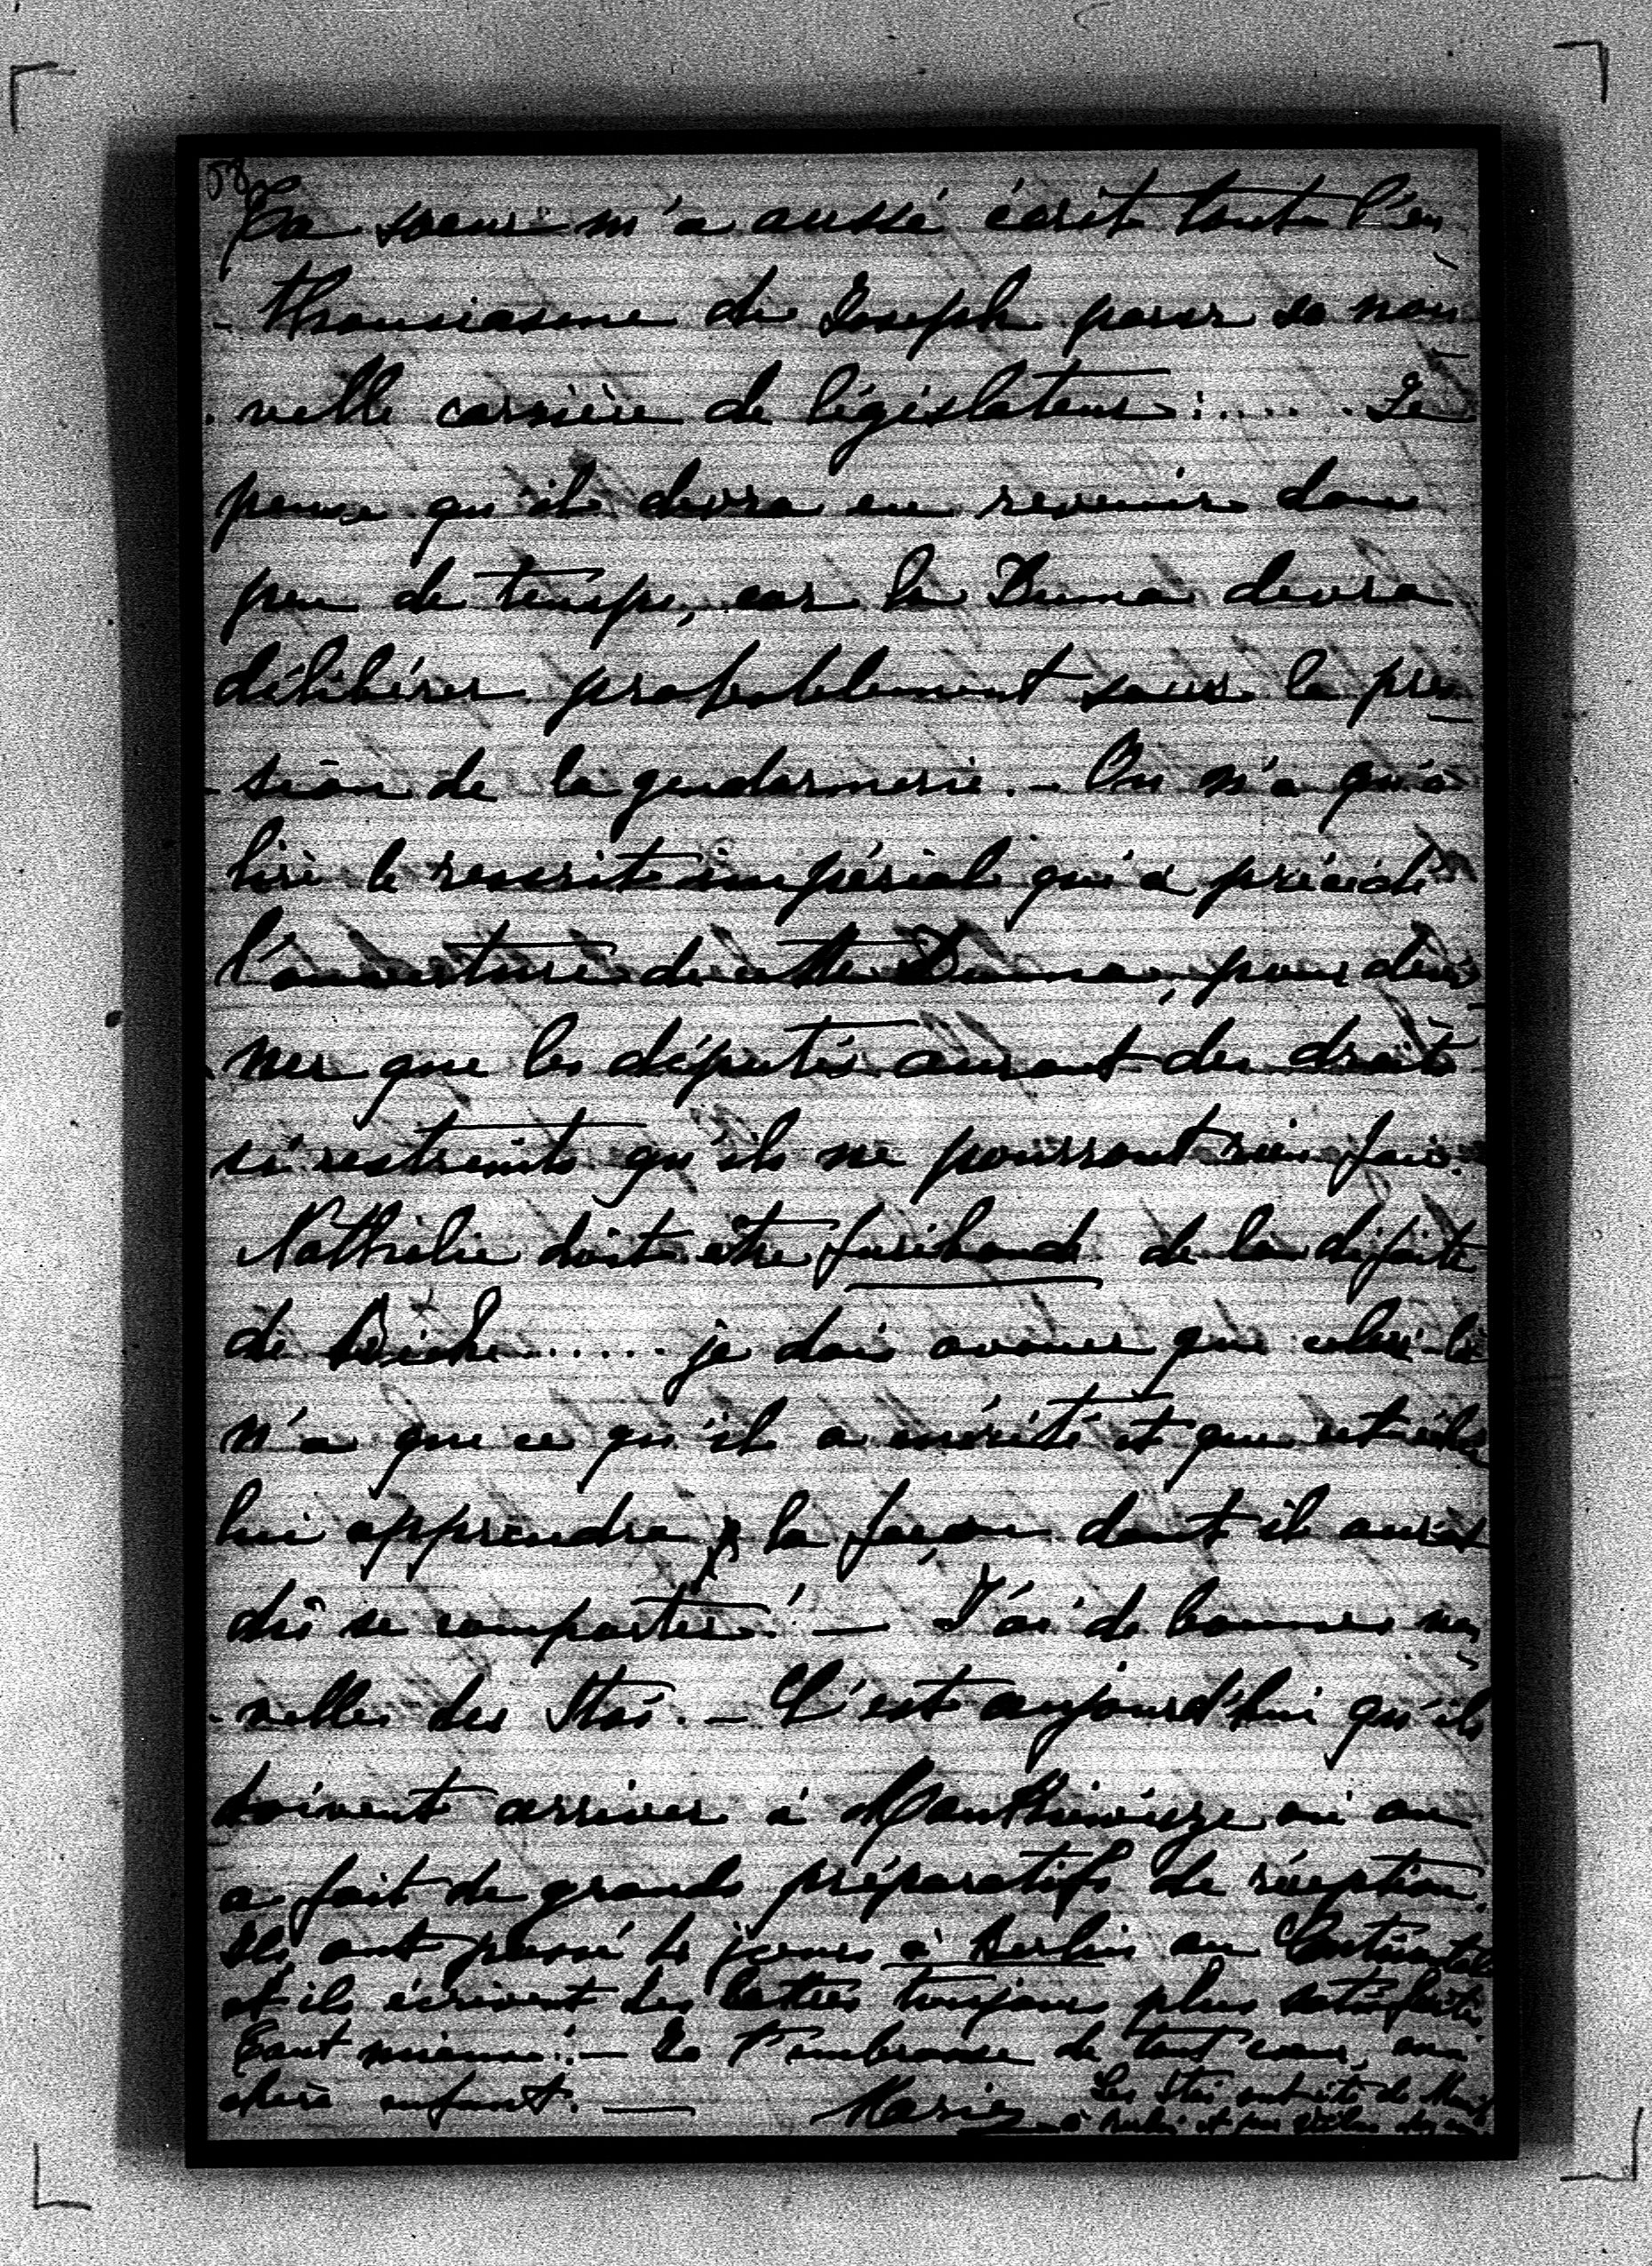 58
Ta soeur m'a aussi écrit tout l'en-
-thousiasme de Joseph pour sa nou-
-velle carrière de législateur:..... Je
pense qu'il devra en revenir dans
peu de temps, car la Duma devra
délibérer probablement sous la pres-
-sion de la gendarmerie. - On n'a qu'à
lire le rescrit impérial qui a précédé
l'ouverture de cette Duma, pour devi-
-ner que les députés auront des droits
si restreints qu'ils ne pourront rien faire.
Nathalie doit être furibonde de la défaite
de ..... je dois avouer que celui-là
n'a que ce qu'il a mérité et que cet échec
lui apprendra la façon dont il aurait
dû se comporter! — J'ai de bonnes nou-
-velles des Stas. — C'est aujourd'hui qu'ils
doivent arriver à où on
a fait de grands préparatifs de réception.
Ils ont passé jours à Berlin au Continental
et ils écrivent des lettres toujours plus satisfaites
Tant mieux! — Je t'embrasse de tout coeur, ma
chère enfant. — Marie
Les Stas ont été de
à Berlin et